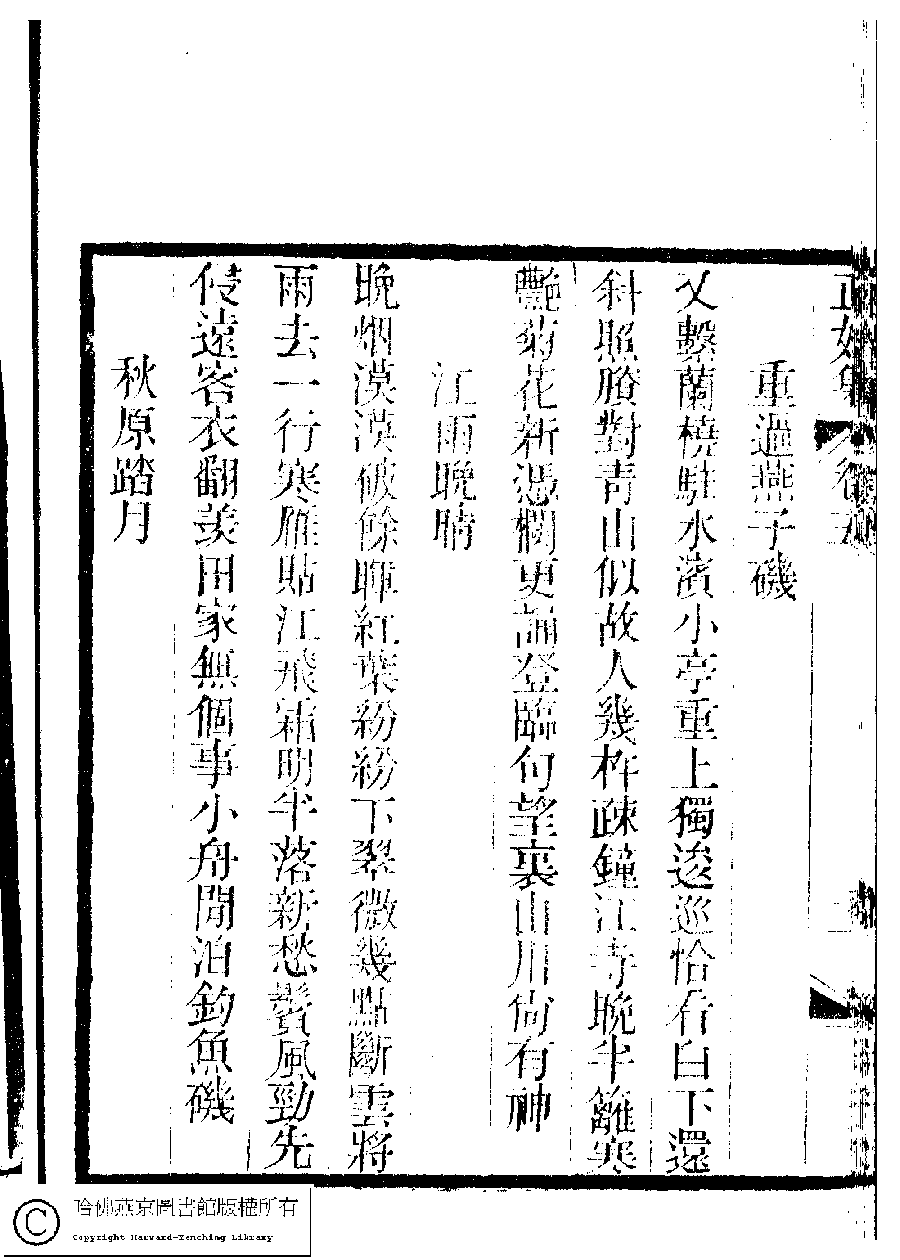 正始集
重過燕子磯
又繫蘭橈駐水濱小亭重上獨逡巡恰看白下還
斜照賸對青山似故人幾杵疎鐘江寺晚半籬寒
艷菊花新憑欄更誦登臨句望裏山川尙有神
江雨晚晴
晚烟漠漠破餘暉紅葉紛紛下翠微幾點斷雲將
雨去一行寒雁貼江飛霜明半落新愁鬢風勁先
侍遠客衣翻羨田家無個事小舟閒泊釣魚磯
秋原踏月
哈佛燕京圖書館版權所有
Copyright Harvard-Yenching Library